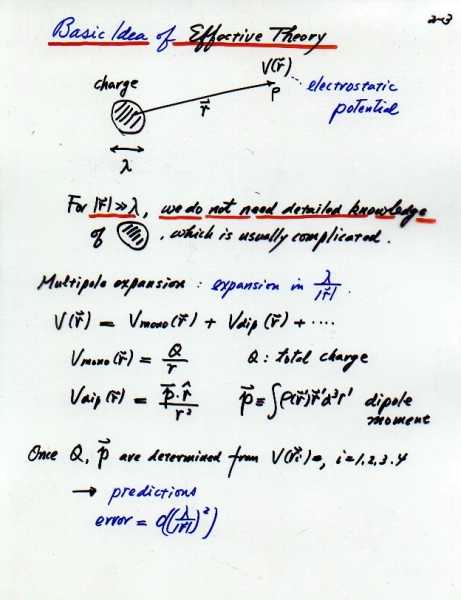 2-3
Basic Idea of Effective Theory
V(r⃗)
charge
electrostatic
P
potential
r⃗
λ
For |r⃗| ≫ λ, we do not need detailed knowledge
of , which is usually complicated.
Multipole expansion : expansion in λ/|r⃗|.
V(r⃗) = Vmono(r⃗) + Vdip(r⃗) + ····
Vmono(r⃗) = Q/r Q : total charge
Vdip(r⃗) = p⃗·r̂/r² p⃗ ≡ ∫ρ(r⃗')r⃗'d³r' dipole
moment
Once Q, p⃗ are determined from V(r⃗i)=, i=1,2,3,4
→ predictions
error = O((λ/|r⃗|)²)